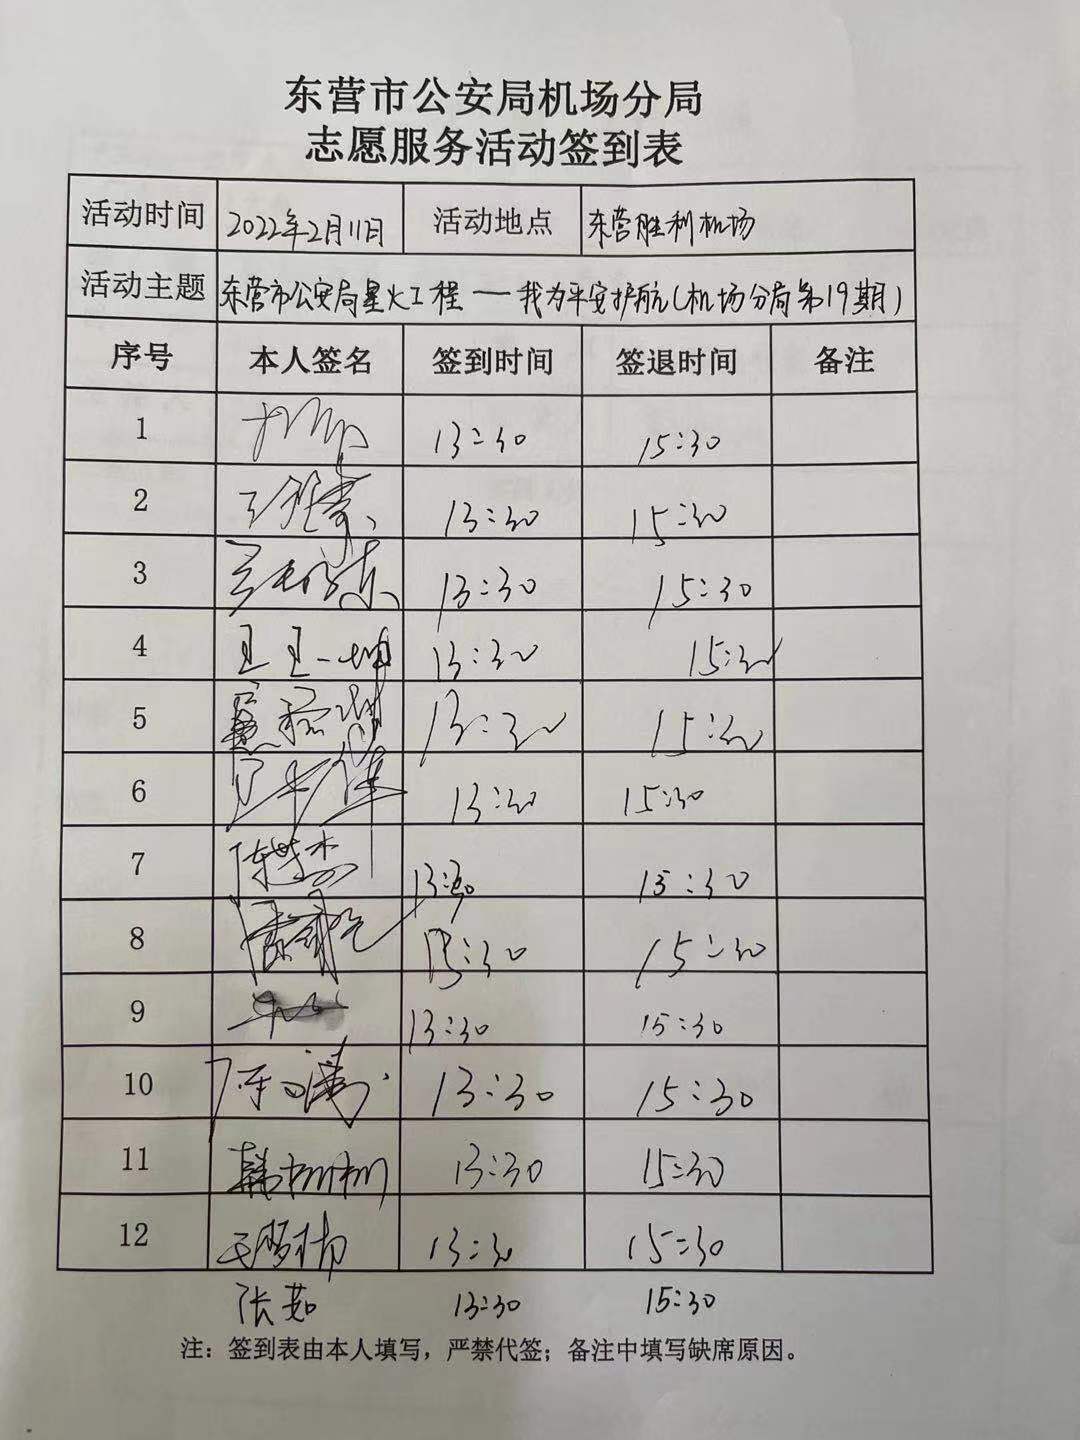 东营市公安局机场分局
志愿服务活动签到表
活动时间 2022年2月11日 活动地点 东营胜利机场
活动主题 东营市公安局星火工程——我为平安护航(机场分局第19期)
序号 本人签名 签到时间 签退时间 备注
1 13:30 15:30
2 13:30 15:30
3 13:30 15:30
4 13:30 15:30
5 13:30 15:30
6 13:30 15:30
7 陈世杰 13:30 15:30
8 13:30 15:30
9 13:30 15:30
10 13:30 15:30
11 韩树树 13:30 15:30
12 王梦楠 13:30 15:30
张茹 13:30 15:30
注：签到表由本人填写，严禁代签；备注中填写缺席原因。